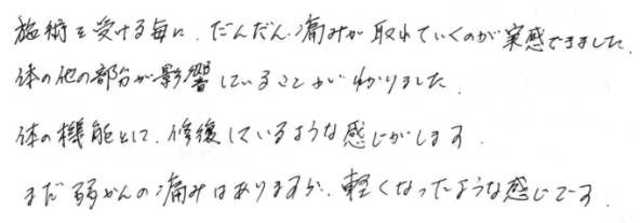 施術を受ける毎に、だんだん痛みが取れていくのが実感できました。
体の他の部分が影響していることがわかりました。
体の機能として、修復しているような感じがします。
まだ弱かんの痛みはありますが、軽くなったような感じです。